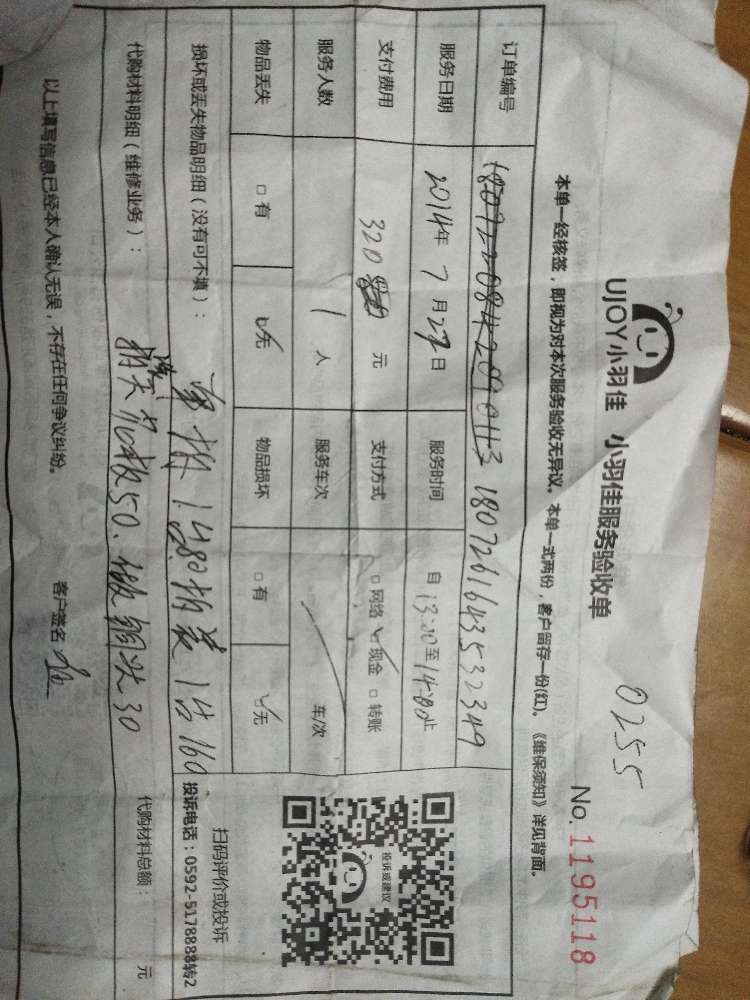 0255
UJOY小羽佳 小羽佳服务验收单 No.1195118
本单一经核签，即视为对本次服务验收无异议。本单一式两份，客户留存一份(红)。《维保须知》详见背面。
订单编号 1807261643532349
服务日期 2014年7月27日 服务时间 自13:00至14:00止
支付费用 320 元 支付方式 □网络 ☑现金 □转账
服务人数 1人 服务车次 车/次
物品丢失 □有 ☑无 物品损坏 □有 ☑无
损坏或丢失物品明细（没有可不填）：
拆1台80.拆装1台160
代购材料明细（维修业务）：
50.做铜头30
代购材料总额： 元
以上填写信息已经本人确认无误，不存在任何争议纠纷。 客户签名
投诉或建议
扫码评价或投诉
投诉电话：0592-5178888转2